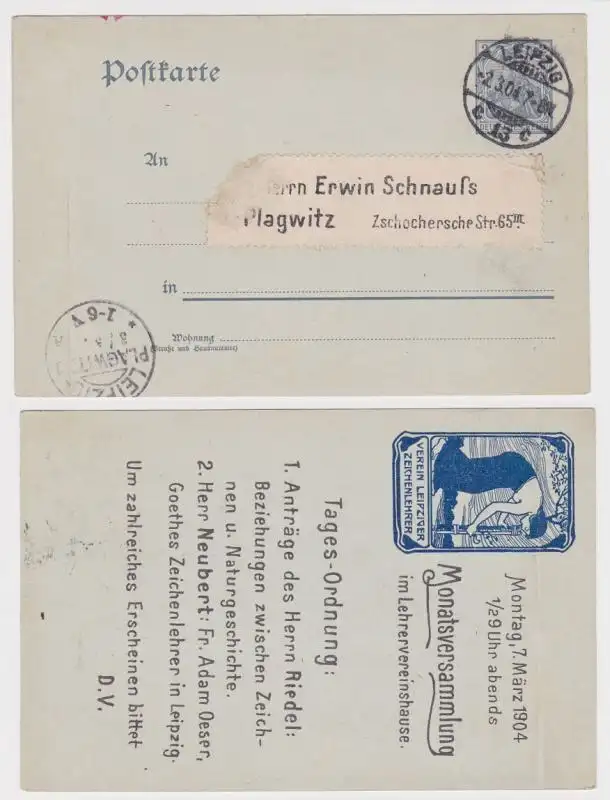 Postkarte
LEIPZIG
-2.3.04. 7-8N.
C 13 C
An
Herrn Erwin Schnauſs
Plagwitz Zschochersche Str. 65III.
in
Wohnung
(Straße und Hausnummer)
LEIPZIG
PLAGWITZ
1-6 V
VEREIN LEIPZIGER
ZEICHENLEHRER
Montag, 7. März 1904
1/29 Uhr abends
Monatsversammlung
im Lehrervereinshause.
Tages-Ordnung:
1. Anträge des Herrn Riedel:
Beziehungen zwischen Zeich-
nen u. Naturgeschichte.
2. Herr Neubert: Fr. Adam Oeser,
Goethes Zeichenlehrer in Leipzig.
Um zahlreiches Erscheinen bittet
D.V.